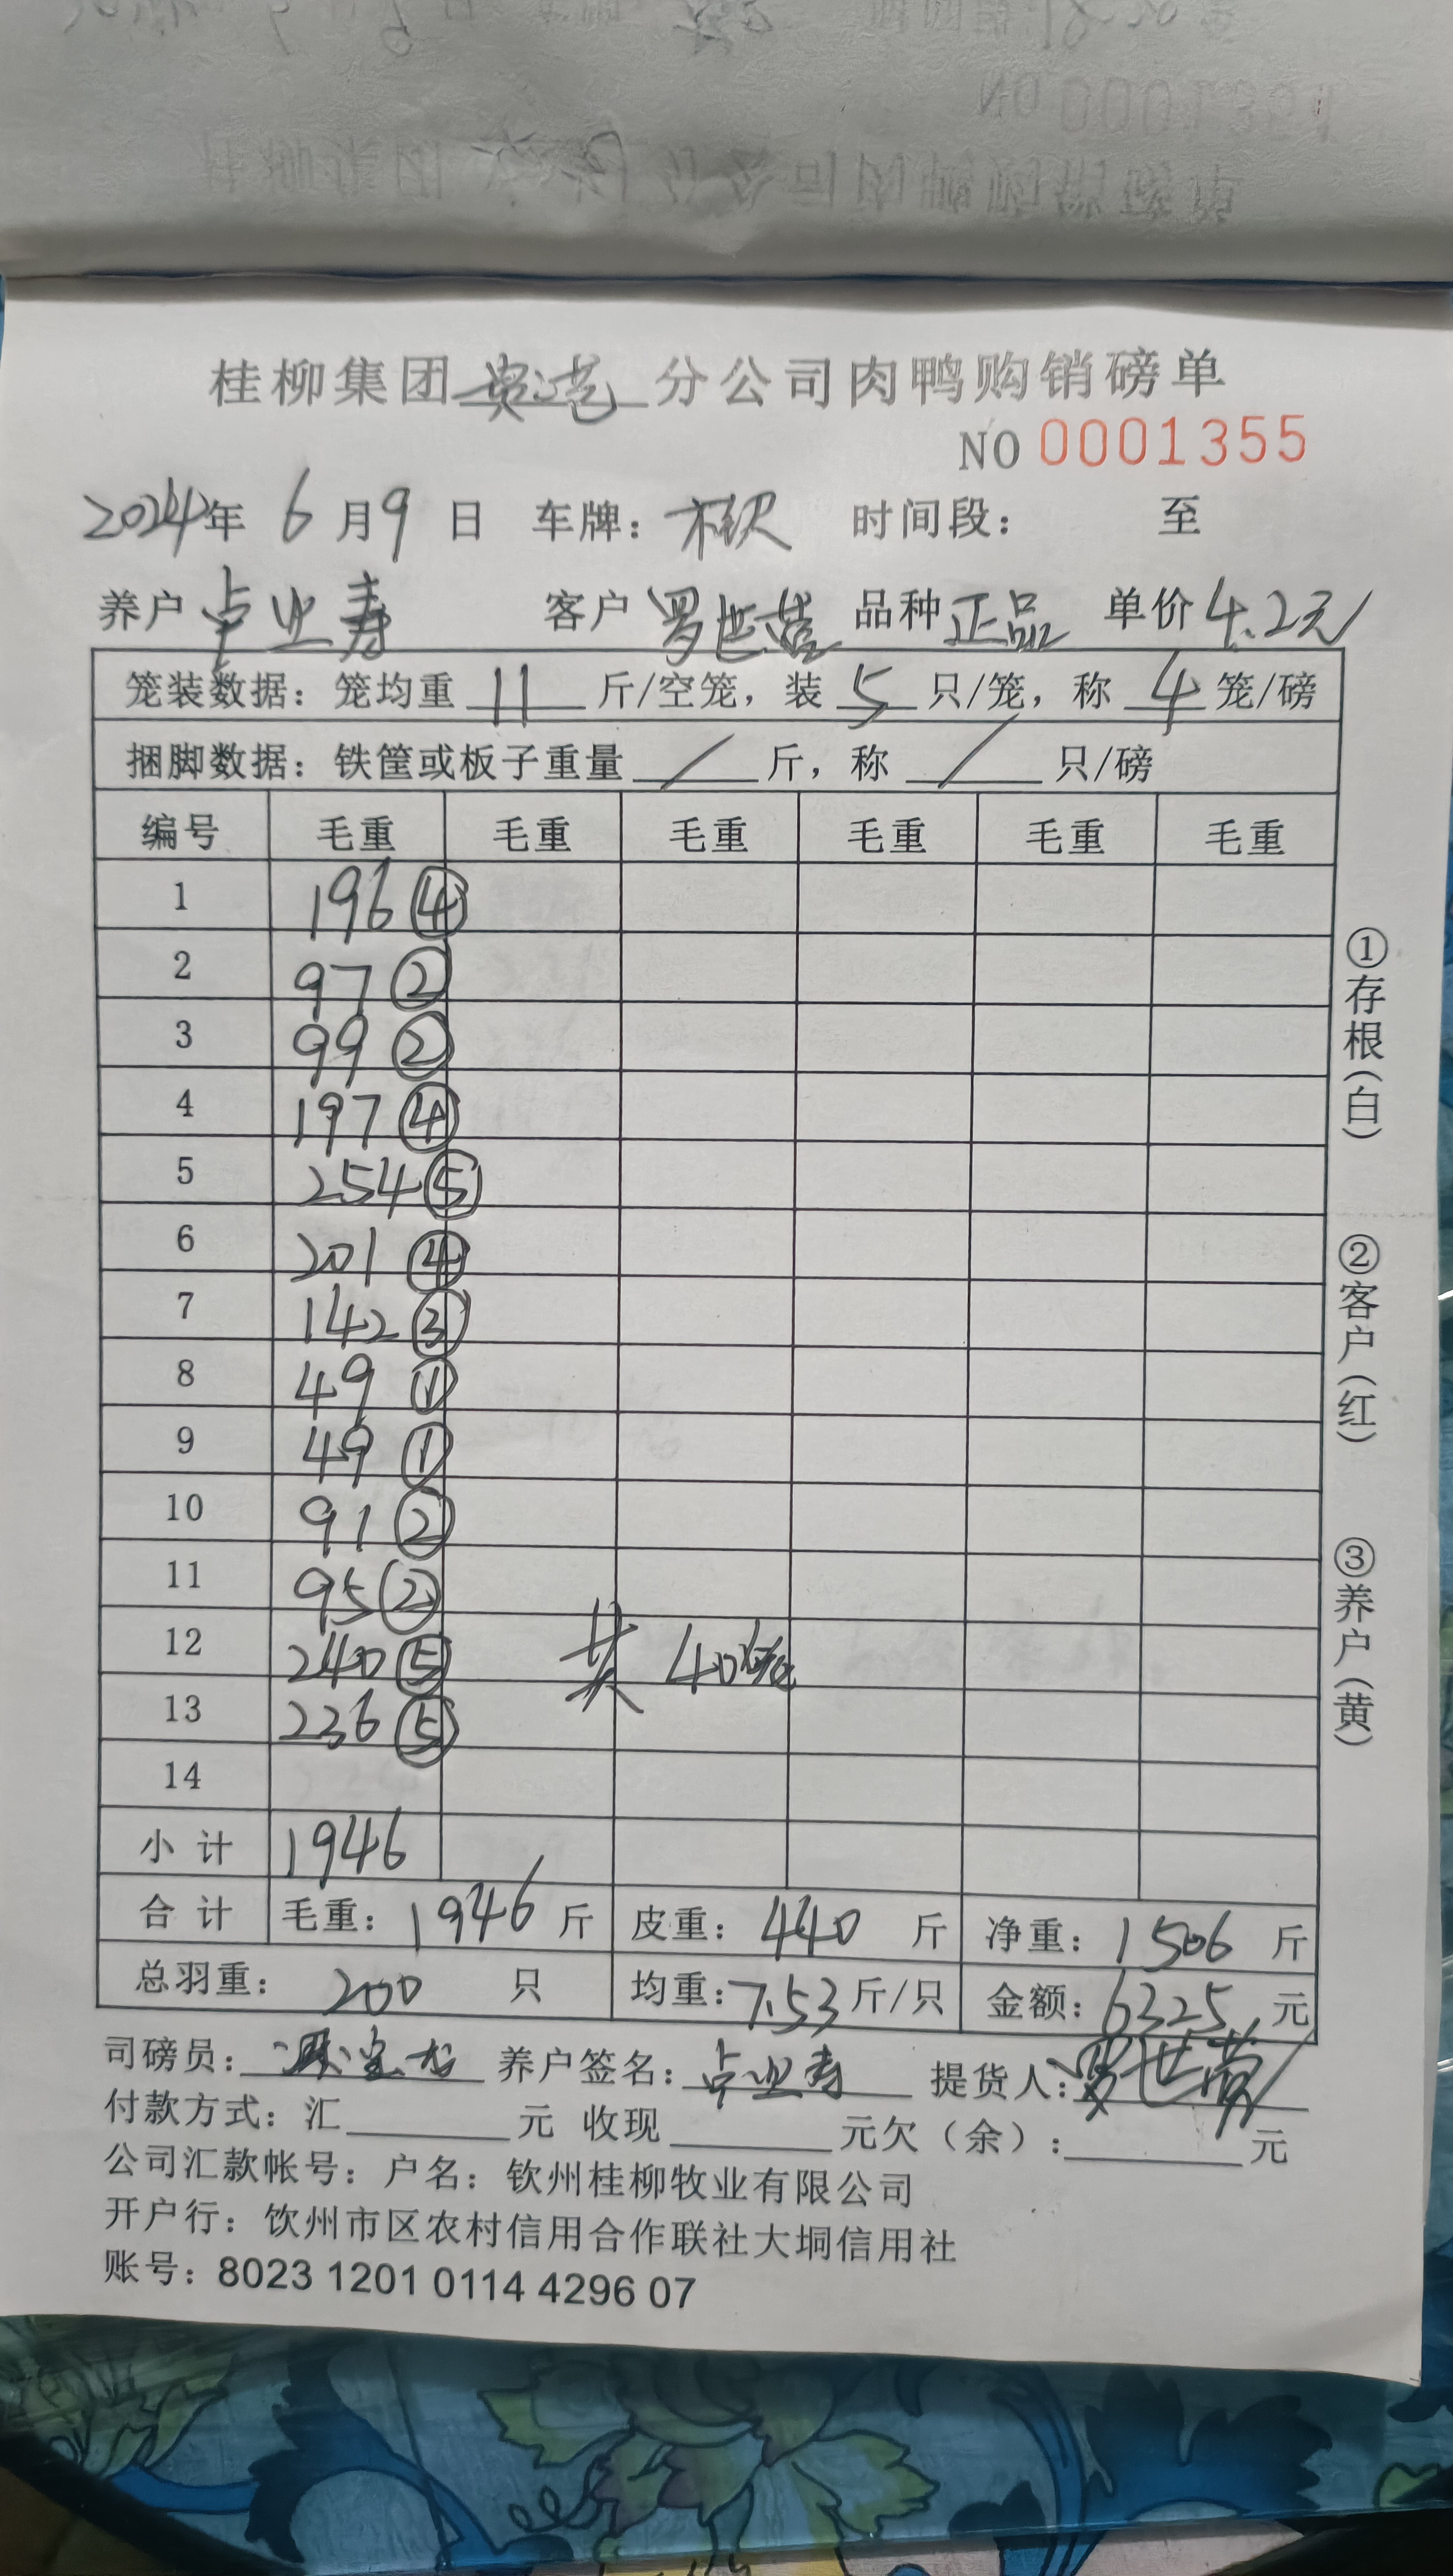 桂柳集团贵港分公司肉鸭购销磅单
NO 0001355
2024年 6月9日 车牌： 时间段： 至
养户 卢业寿 客户 罗世营 品种 正品 单价 4.2元
笼装数据：笼均重 11 斤/空笼，装 5 只/笼，称 4 笼/磅
捆脚数据：铁筐或板子重量 / 斤，称 / 只/磅
编号 毛重 毛重 毛重 毛重 毛重 毛重
1 196 ④
2 97 ②
3 99 ②
4 197 ④
5 254 ⑤
6 201 ④
7 142 ③
8 49 ①
9 49 ①
10 91 ②
11 95 ②
12 240 ⑤ 共 40笼
13 236 ⑤
14
小计 1946
合计 毛重：1946 斤 皮重：440 斤 净重：1506 斤
总羽重：200 只 均重：7.53 斤/只 金额：6325 元
司磅员： 养户签名：卢业寿 提货人：罗世营
付款方式：汇 元 收现 元欠（余）： 元
公司汇款帐号：户名：钦州桂柳牧业有限公司
开户行：饮州市区农村信用合作联社大垌信用社
账号：8023 1201 0114 4296 07
①存根（白）
②客户（红）
③养户（黄）